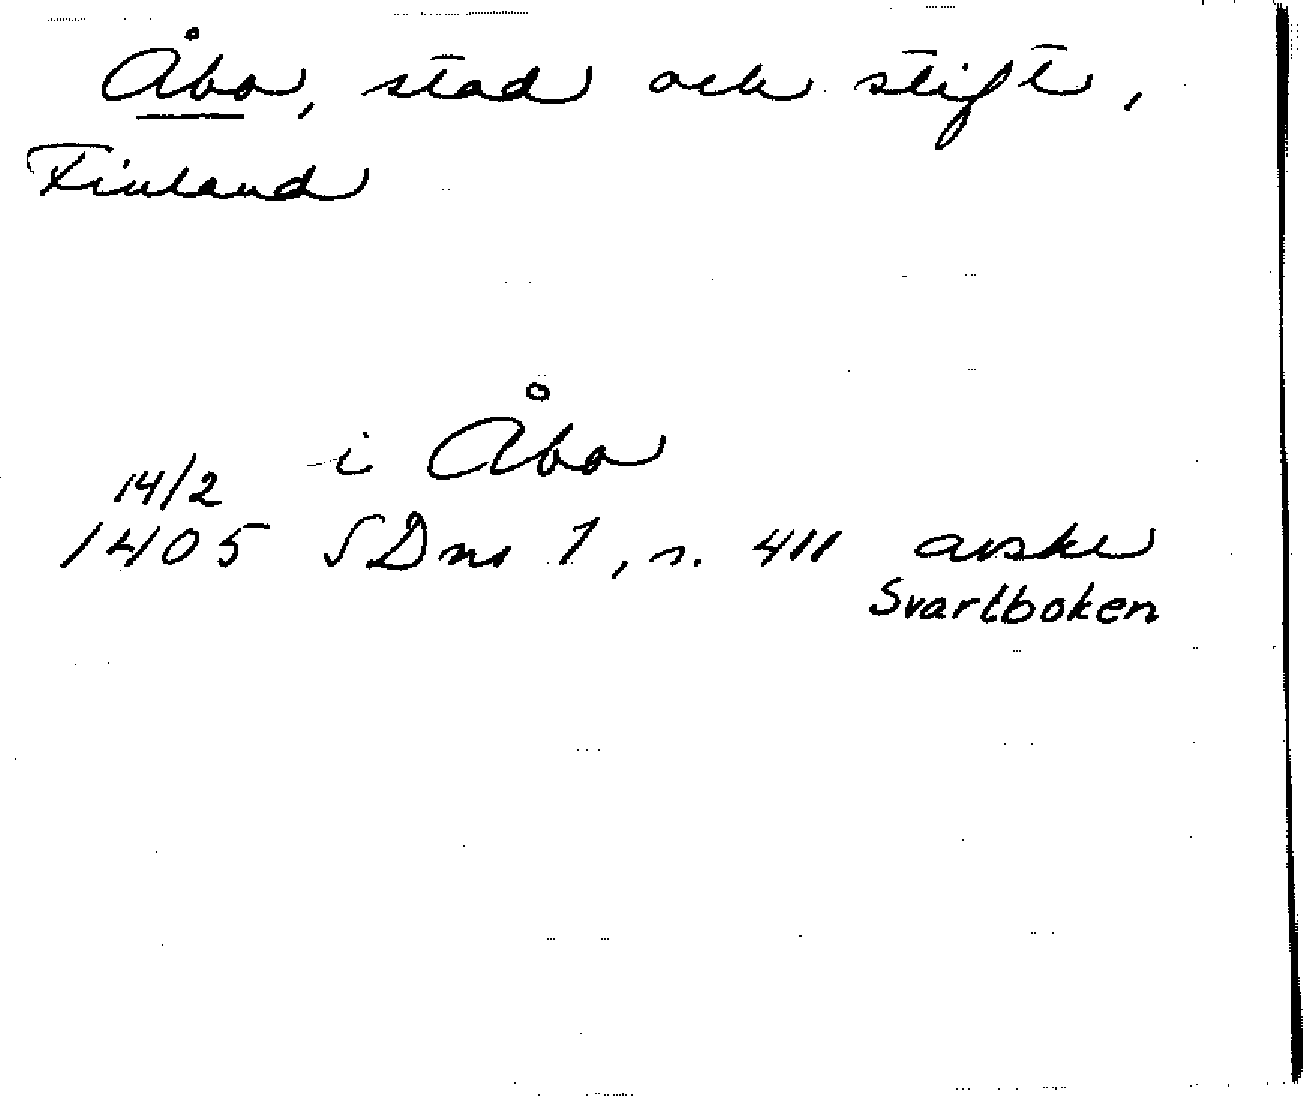 Åbo, stad och stift,
Finland
i Åbo
14/2
1405 SDns 1, s. 411 avskr
Svartboken